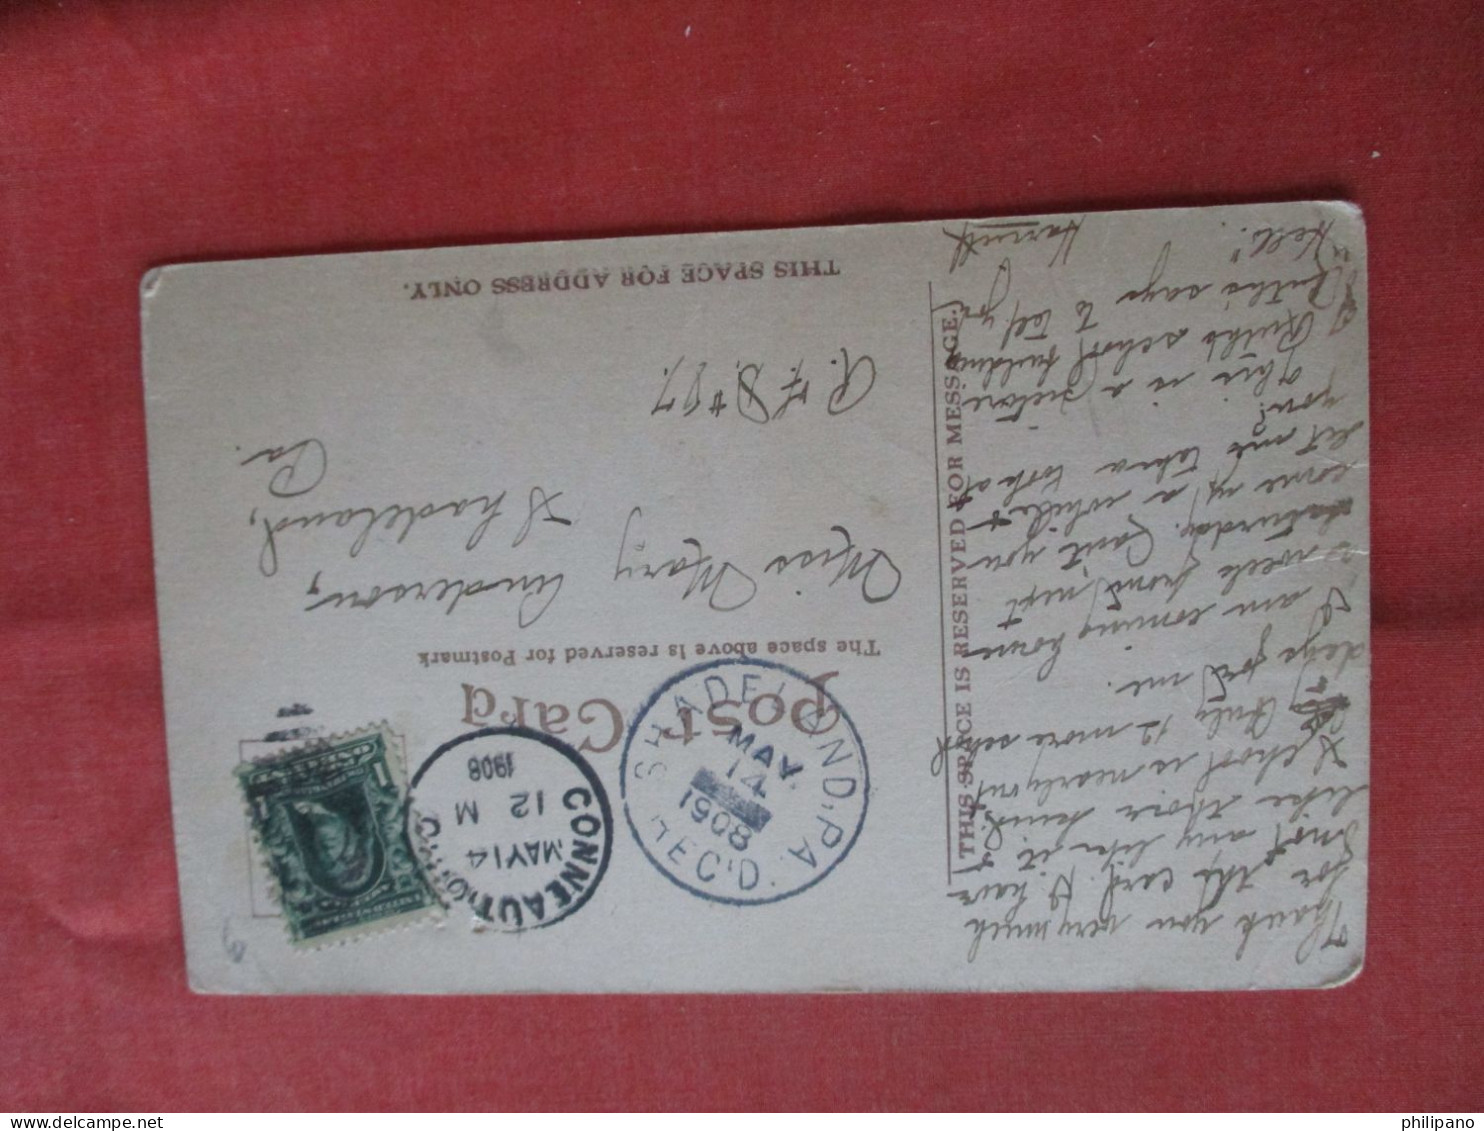 Post Card
The space above is reserved for Postmark
THIS SPACE IS RESERVED FOR MESSAGE.
THIS SPACE FOR ADDRESS ONLY.
ONE
1
CONNEAUT
MAY 14
12 M
1908
SHADELAND, PA.
MAY
14
1908
REC'D.
Thank you very much
for the card. I have
not any like it. I
like those kind.
School is nearly out
Only 12 more school
days for me.
I am coming home
a week from next
Saturday. Can't you
come up a while +
let me take a look at
you?
This is a picture
Ruth's school building
Ruth says to tell you
Hello!
Harriett
Miss Mary Anderson,
Shadeland,
Pa.
R. F. D. #87.
philipano